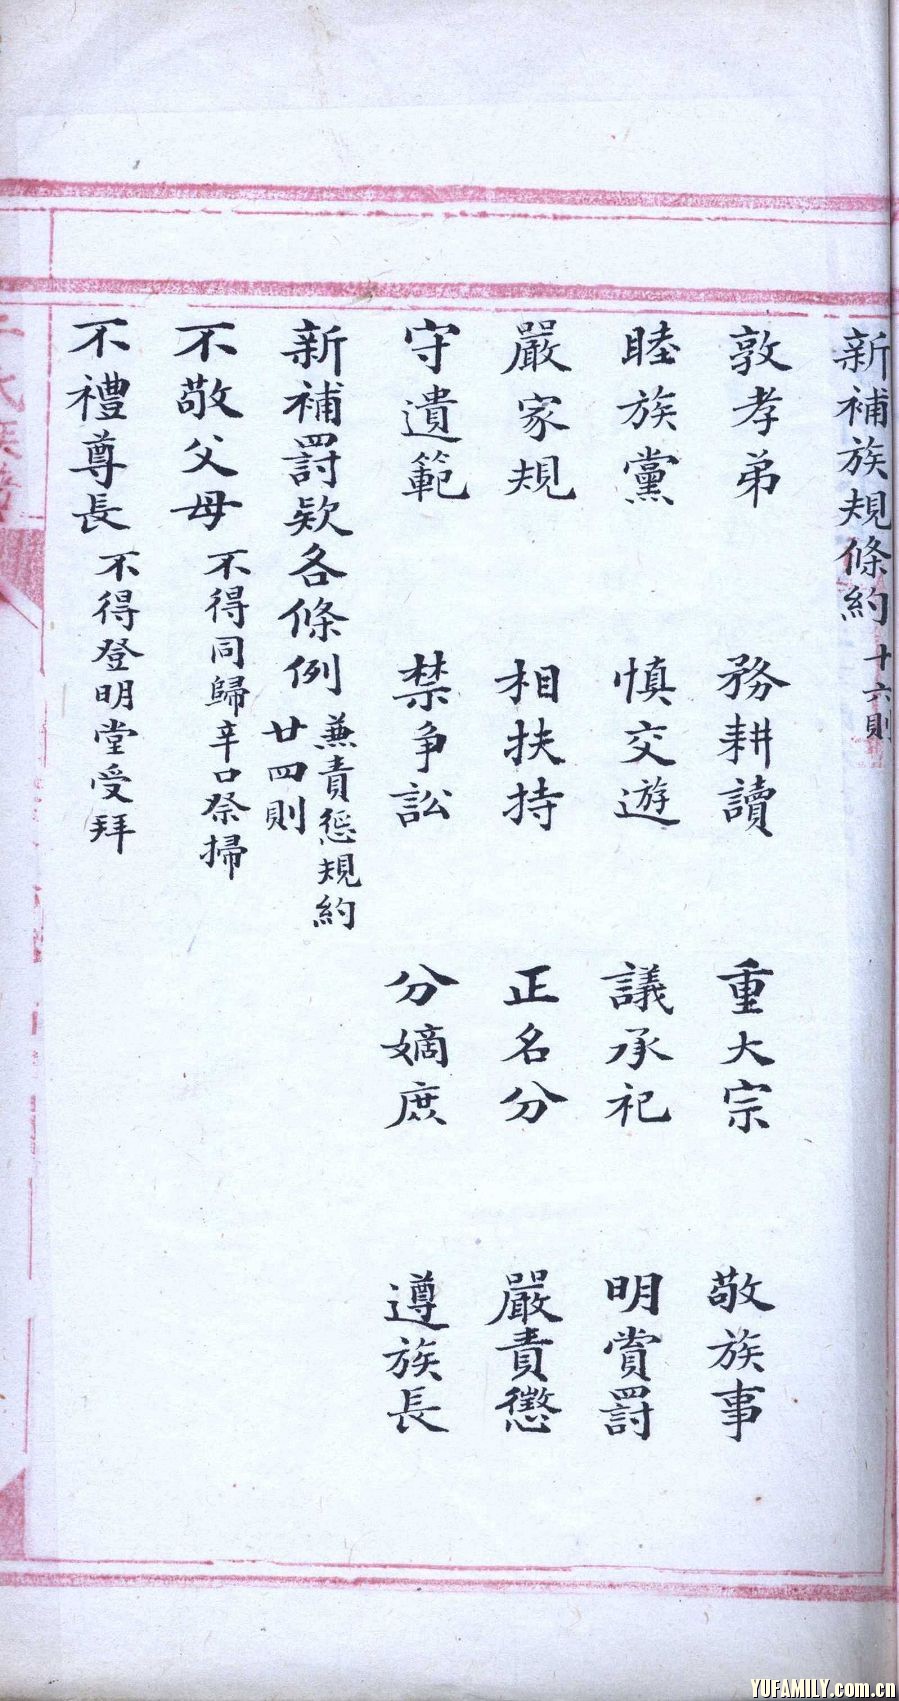 新補族規條約 十六則
敦孝弟 務耕讀 重大宗 敬族事
睦族黨 慎交遊 議承祀 明賞罰
嚴家規 相扶持 正名分 嚴責懲
守遺範 禁爭訟 分嫡庶 遵族長
新補罰欵各條例 兼責懲規約 廿四則
不敬父母 不得同歸辛口祭掃
不禮尊長 不得登明堂受拜
氏族譜
YUFAMILY.com.cn